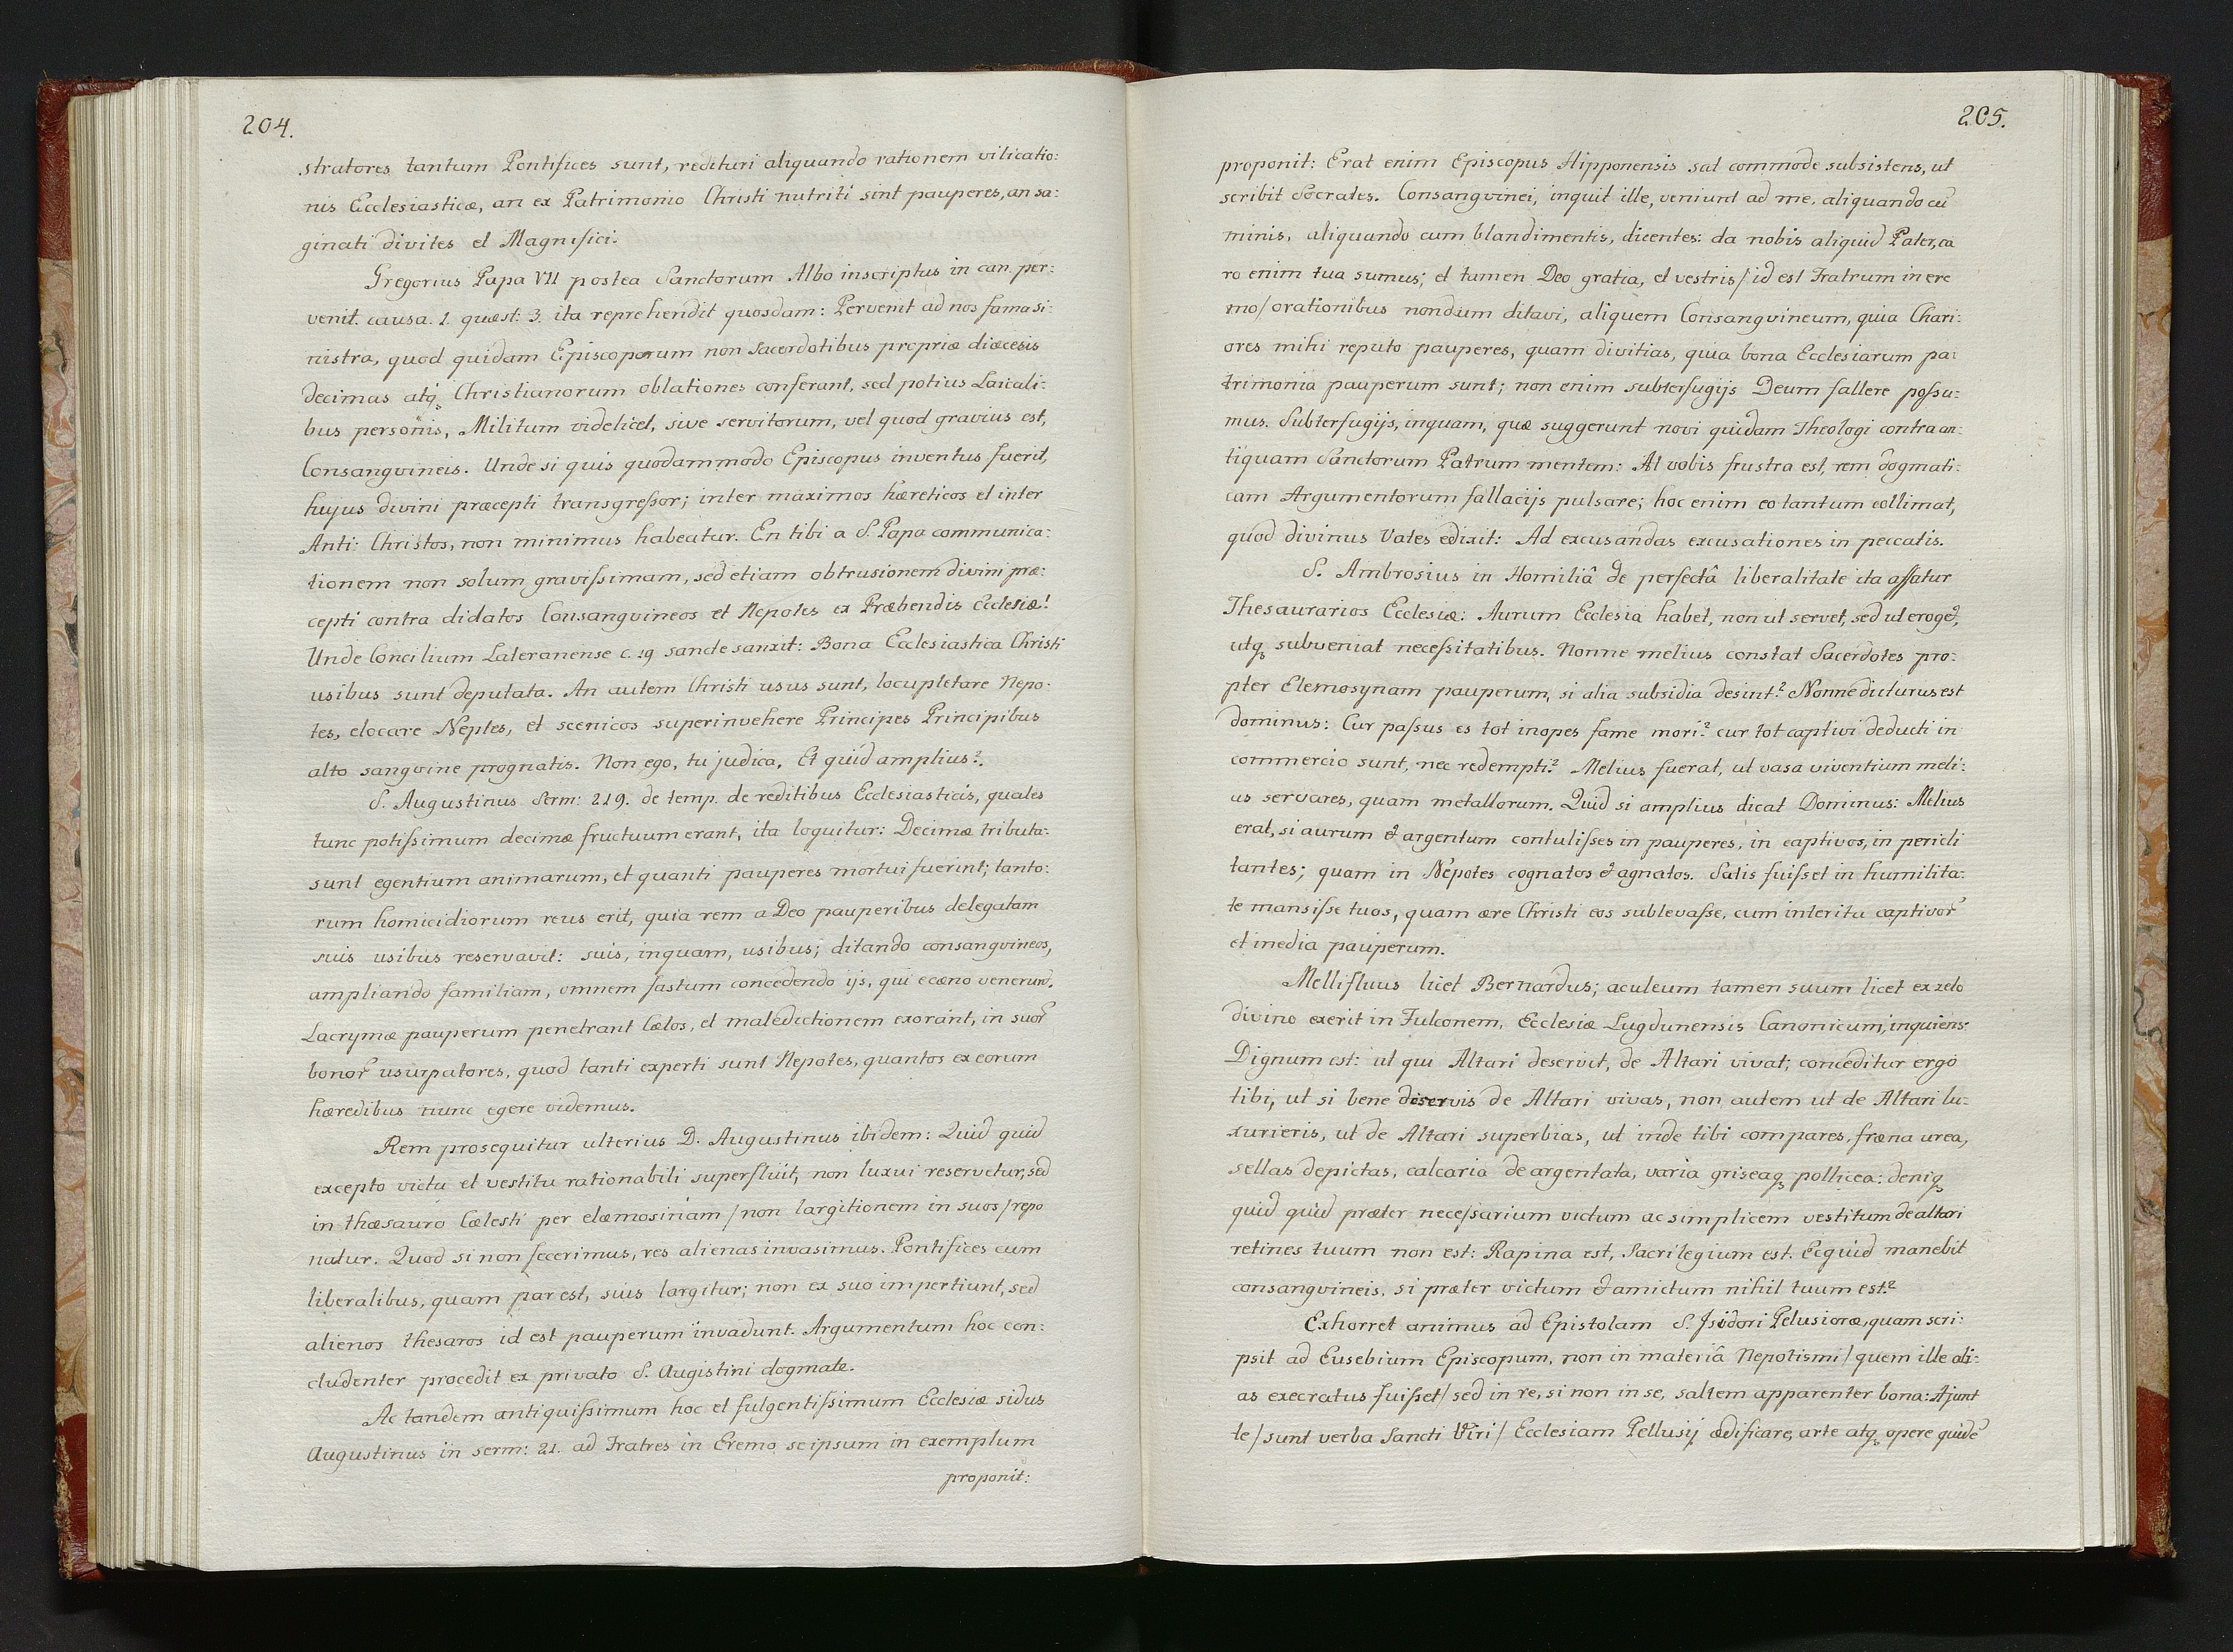 204.
stratores tantum Pontifices sunt, redituri aliquando rationem vilicatio:
nis Ecclesiasticæ, an ex Patrimonio Christi nutriti sint pauperes, an sa:
ginati divites et Magnifici.
Gregorius Papa VII postea Sanctorum Albo inscriptus in can. per:
venit. causa. 1. quæst: 3. ita reprehendit quosdam: Pervenit ad nos fama si:
nistra, quod quidam Episcoporum non Sacerdotibus propriæ diæcesis
decimas atq Christianorum oblationes conferant, sed potius Laicali:
bus personis, Militum videlicet, sive servitorum, vel quod gravius est,
Consangvineis. Unde si quis quodammodo Episcopus inventus fuerit,
hujus divini præcepti transgreſsor; inter maximos hæreticos et inter
Anti: Christos, non minimus habeatur. En tibi a S. Papa communica:
tionem non solum graviſsimam, sed etiam obtrusionem divini præ:
cepti contra didatos Consangvineos et Nepotes ex Præbendis Ecclesiæ!
Unde Concilium Lateranense c. 19 sancte sanxit: Bona Ecclesiastica Christi
usibus sunt deputata. An autem Christi usus sunt, locupletare Nepo:
tes, elocare Neptes, et scenicos superinvehere Principes Principibus
alto sangvine prognatis. Non ego, tu judica, Et quid amplius?.
S. Augustinus Serm: 219. de temp. de reditibus Ecclesiasticis, quales
tunc potiſsimum decimæ fructuum erant, ita loquitur: Decimæ tributa:
sunt egentium animarum, et quanti pauperes mortui fuerint; tanto:
rum homicidiorum reus erit, quia rem a Deo pauperibus delegatam
suis usibus reservavit: suis, inquam, usibus; ditando consangvineos,
ampliando familiam, omnem fastum concedendo ijs, qui e cæno venerunt.
Lacrymæ pauperum penetrant Cælos, et maledictionem exorant, in suor̃
bonor̃ usurpatores, quod tanti experti sunt Nepotes, quantos ex eorum
hæredibus nunc egere videmus.
Rem prosequitur ulterius D. Augustinus ibidem: Quid quid
excepto victu et vestitu rationabili superfluit, non luxui reservetur, sed
in thæsauro Cælesti per elæmosinam /non largitionem in suos/ repo
natur. Quod si non fecerimus, res alienas invasimus. Pontifices cum
liberalibus, quam par est, suis largitur; non ex suo impertiunt, sed
alienos thesaros id est pauperum invadunt. Argumentum hoc con:
cludenter procedit ex privato S. Augistini dogmate.
Ac tandem antiquiſsimum hoc et fulgentiſsimum Ecclesiæ sidus
Augustinus in serm: 21. ad Fratres in Eremo se ipsum in exemplum
proponit:
205.
proponit: Erat enim Episcopus Hipponensis sat commode subsistens, ut
scribit Socrates. Consangvinei, inquit ille, veniunt ad me, aliquando cũ
minis, aliquando cum blandimentis, dicentes: da nobis aliquid Pater, ca
ro enim tua sumus; et tamen Deo gratia, et vestris / id est Fratrum in ere
mo/ orationibus nondum ditavi, aliquem Consangvineum, quia Chari:
ores mihi reputo pauperes, quam divitias, quia bona Ecclesiarum pa:
trimonia pauperum sunt; non enim subterfugijs Deum fallere poſsu:
mus. Subterfugijs, inquam, quæ suggerunt novi quidam Theologi contra an:
tiquam Sanctorum Patrum mentem: At vobis frustra est, rem dogmati:
cam Argumentorum fallacijs pulsare; hoc enim eo tantum collimat,
quod divinus Vates edixit: Ad excusandas excusationes in peccatis.
S. Ambrosius in Homiliâ de perfectâ liberalitate ita affatur
Thesaurarios Ecclesiæ: Aurum Ecclesia habet, non ut servet, sed ut eroget,
utq subveniat neceſsitatibus. Nonne melius constat Sacerdotes pro:
pter Elemosynam pauperum, si alia subsidia desint? Nonne dicturus est
dominus: Cur paſsus es tot inopes fame mori? cur tot captivi deducti in
commercio sunt, nec redempti? Melius fuerat, ut vasa viventium meli:
us servares, quam metallorum. Quid si amplius dicat Dominus: Melius
erat, si aurum & argentum contuliſses in pauperes, in captivos, in pericli
tantes; quam in Nepotes cognatos & agnatos. Satis fuiſset in humilita:
te mansiſse tuos, quam ære Christi eos sublevaſse, cum interitu captivor̃
et inedia pauperum.
Mellifluus licet Bernardus; aculeum tamen suum licet ex zelo
divino exerit in Fulconem, Ecclesiæ Lugdunensis Canonicum, inquiens:
Dignum est: ut qui Altari deservit, de Altari vivat; conceditur ergo
tibi, ut si bene diservis de Altari vivas, non autem ut de Altari lu:
xurieris, ut de Altari superbias, ut inde tibi compares, fræna urea,
sellas depictas, calcaria de argentata, varia griseaq pollicea: deniq
quid quid præter neceſsarium victum ac simplicem vestitum de altari
retines tuum non est: Rapina est, Sacrilegium est. Ecquid manebit
consangvineis, si præter victum & amictum nihil tuum est?
Exhorret animus ad Epistolam S. Isidori Pelusioræ, quam scri:
psit ad Eusebium Episcopum, non in materiâ Nepotismi/ quem ille ali:
as execratus fuiſset/ sed in re, si non in se, saltem apparenter bona: Ajunt
te/ sunt verba Sancti Viri/ Ecclesiam Pellusij ædificare, arte atq opere quidẽ